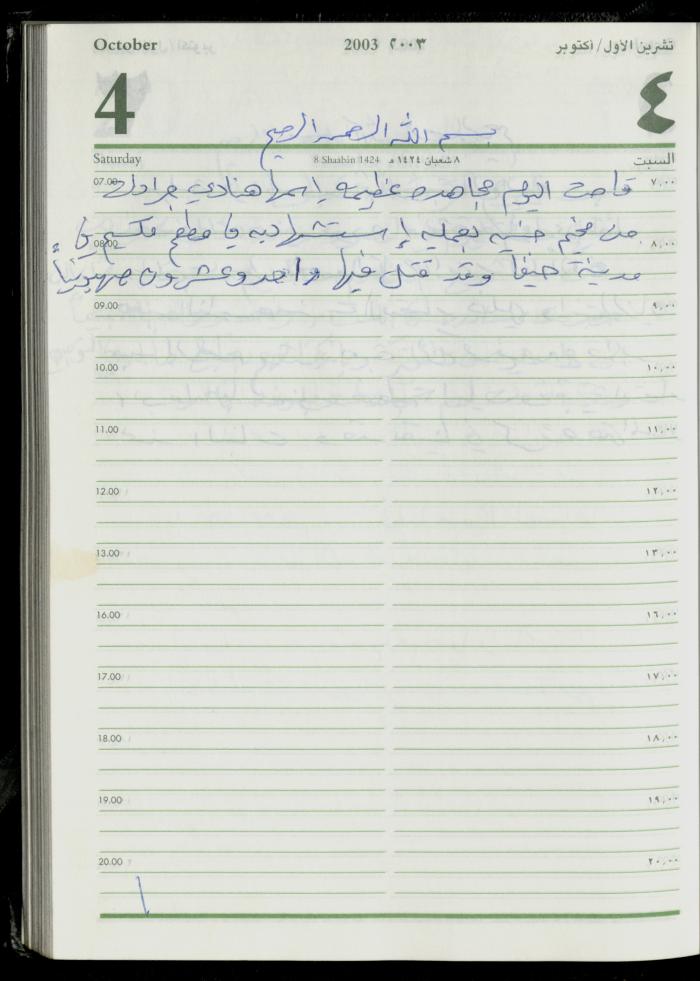 October 2003 ٢٠٠٣ تشرين الأول/أكتوبر
4 ٤
بسم الله الرحمن الرحيم
Saturday 8 Shaabin 1424 ٨ شعبان ١٤٢٤ هـ السبت
07.00 ٧,٠٠
قامت اليوم مجاهده عظيمه إسمها هنادي جرادات
من مخيم جنين بعمليه إستشهاديه في مطعم مكسيم في
08.00 ٨,٠٠
مدينة حيفا وقد قتل فيها واحد وعشرون صهيونياً
09.00 ٩,٠٠
10.00 ١٠,٠٠
11.00 ١١,٠٠
12.00 ١٢,٠٠
13.00 ١٣,٠٠
16.00 ١٦,٠٠
17.00 ١٧,٠٠
18.00 ١٨,٠٠
19.00 ١٩,٠٠
20.00 ٢٠,٠٠